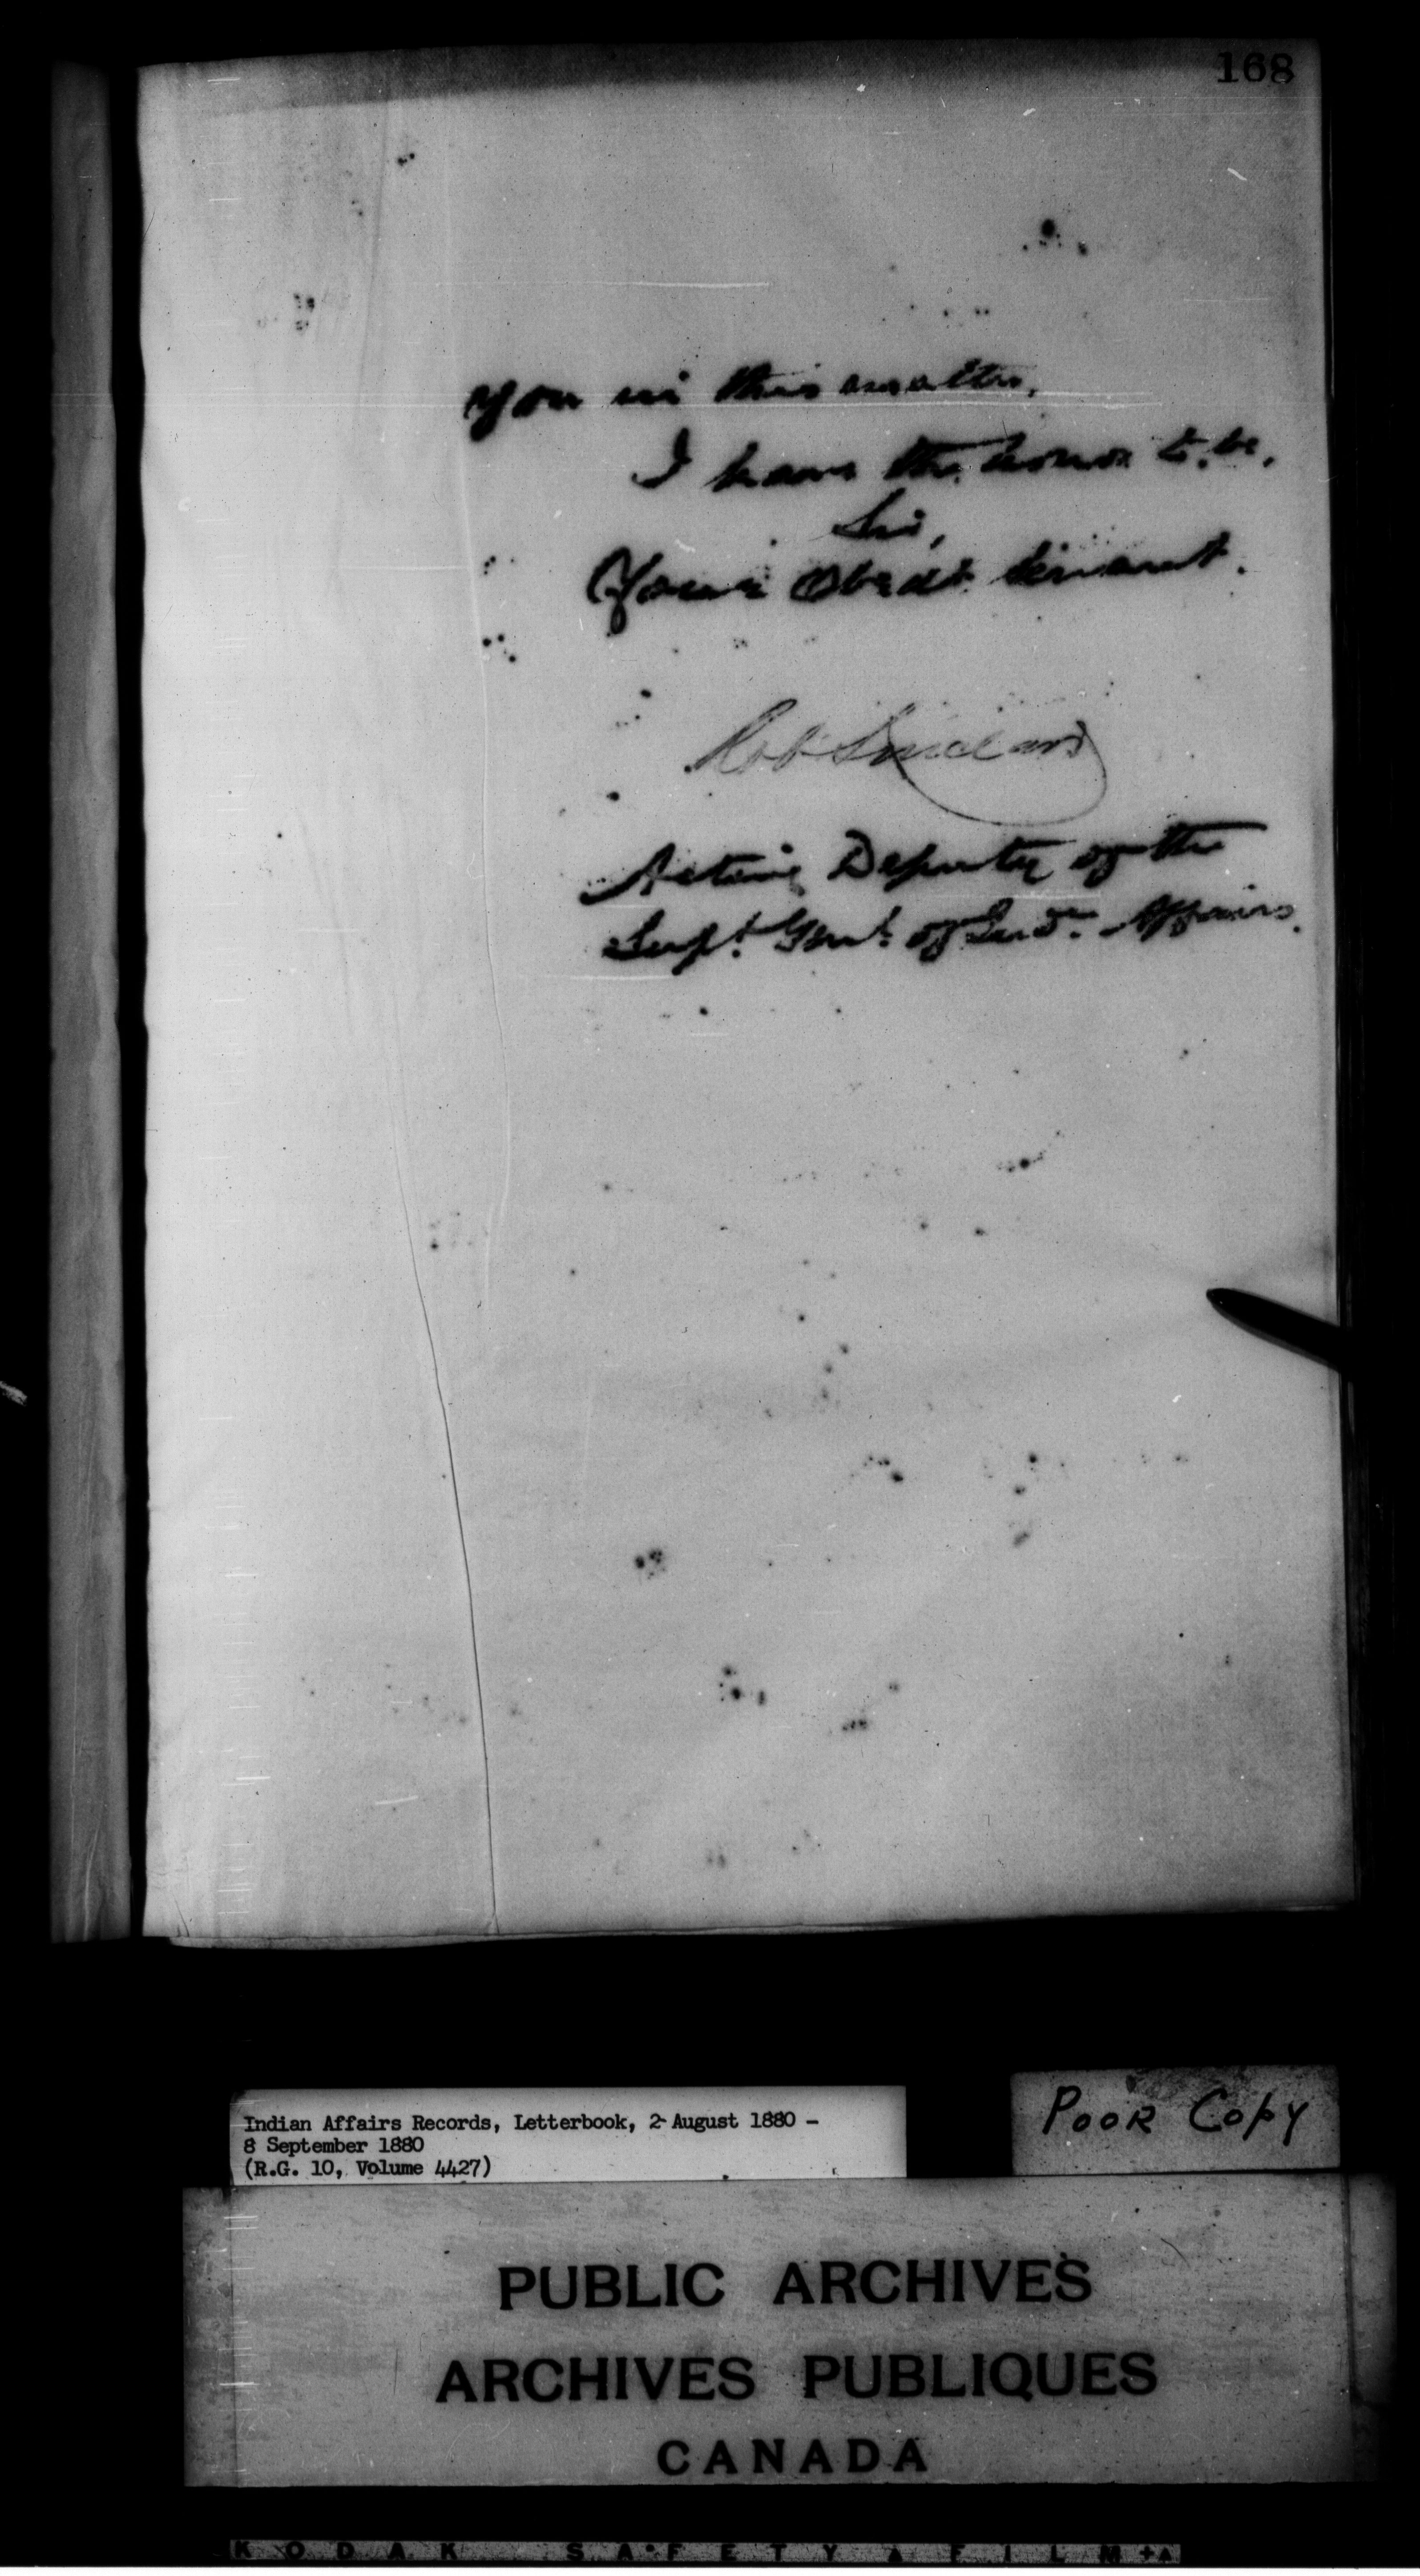 168
you in this matter.
I have the honor to be,
Sir,
Your Obedt. Servant.
Rob Sinclair
Acting Deputy of the
Supt. Genl. of Indn. Affairs.
Indian Affairs Records, Letterbook, 2 August 1880 -
8 September 1880
(R.G. 10, Volume 4427)
POOR COPY
PUBLIC ARCHIVES
ARCHIVES PUBLIQUES
CANADA
KODAK SAFETY FILM